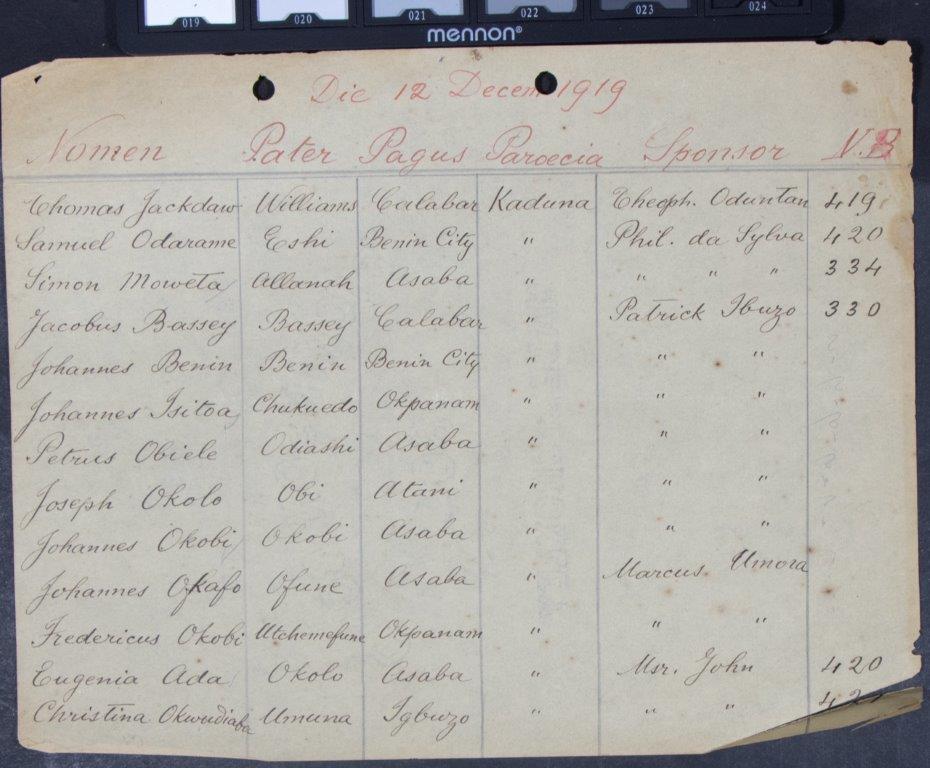 019 020 021 022 023 024
mennon®
Die 12 Decem 1919
Nomen Pater Pagus Paroecia Sponsor N.B
Thomas Jackdaw Williams Calabar Kaduna Theoph. Oduntan 419
Samuel Odarame Eshi Benin City " Phil. da Sylva 420
Simon Moweta Allanah Asaba " " " " 334
Jacobus Bassey Bassey Calabar " Patrick Ibuzo 330
Johannes Benin Benin Benin City " " "
Johannes Isitoa Chukuedo Okpanam " " "
Petrus Obiele Odiashi Asaba " " "
Joseph Okolo Obi Atani " " "
Johannes Okobi Okobi Asaba " " "
Johannes Okafo Ofune Asaba " Marcus Umora
Fredericus Okobi Utchemefune Okpanam " " "
Eugenia Ada Okolo Asaba " Msr. John 420
Christina Okwudiaba Umuna Igbuzo " " "